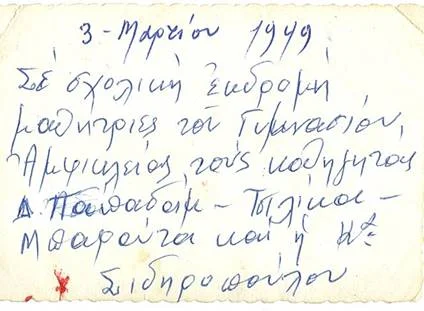 3 - Μαρτίου 1949
Σέ σχολική ἐκδρομή
μαθήτριες τοῦ Γυμνασίου
Ἀμφικλείας τούς καθηγητας
Δ Παπαδημ - Τσιλίκα -
Μπαρούτα και ἡ Κα
Σιδηροπούλου